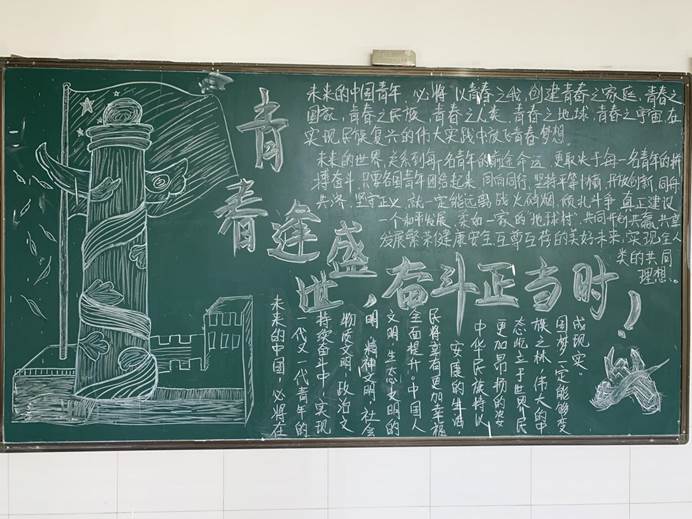 青春逢盛世，奋斗正当时！
未来的中国青年，必将以青春之我，创建青春之家庭，青春之
国家，青春之民族，青春之人类，青春之地球，青春之宇宙，在
实现民族复兴的伟大实践中放飞青春梦想。
未来的世界，关系到每一名青年的前途命运，更取决于每一名青年的拼
搏奋斗，只要各国青年团结起来，同向同行，坚持和平，开放创新，同舟
共济，坚守正义，就一定能远离战火硝烟，倾轧斗争，真正建设
一个和平发展，亲如一家的“地球村”，共同开创共赢，共享
发展繁荣健康安全互尊互待的美好未来，实现全人
类的共同
理想。
未来的中国，必将在
一代又一代青年的
持续奋斗中，实现
物质文明，政治文
明，精神文明，社会
文明，生态文明的
全面提升，中国人
民将享有更加幸福
安康的生活，
中华民族将以
更加昂扬的姿
态屹立于世界民
族之林，伟大的中
国梦一定能够变
成现实。